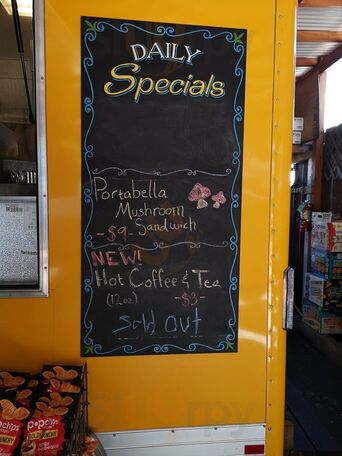 DAILY
Specials
Portabella
Mushroom
Sandwich
-$9-
NEW!
Hot Coffee & Tea
(12oz) -$3-
Sold out
popchips
popchips